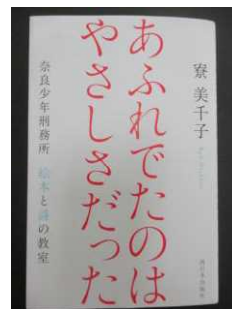 あふれでたのは
やさしさだった
寮 美千子
奈良少年刑務所 絵本と詩の教室
西日本出版社